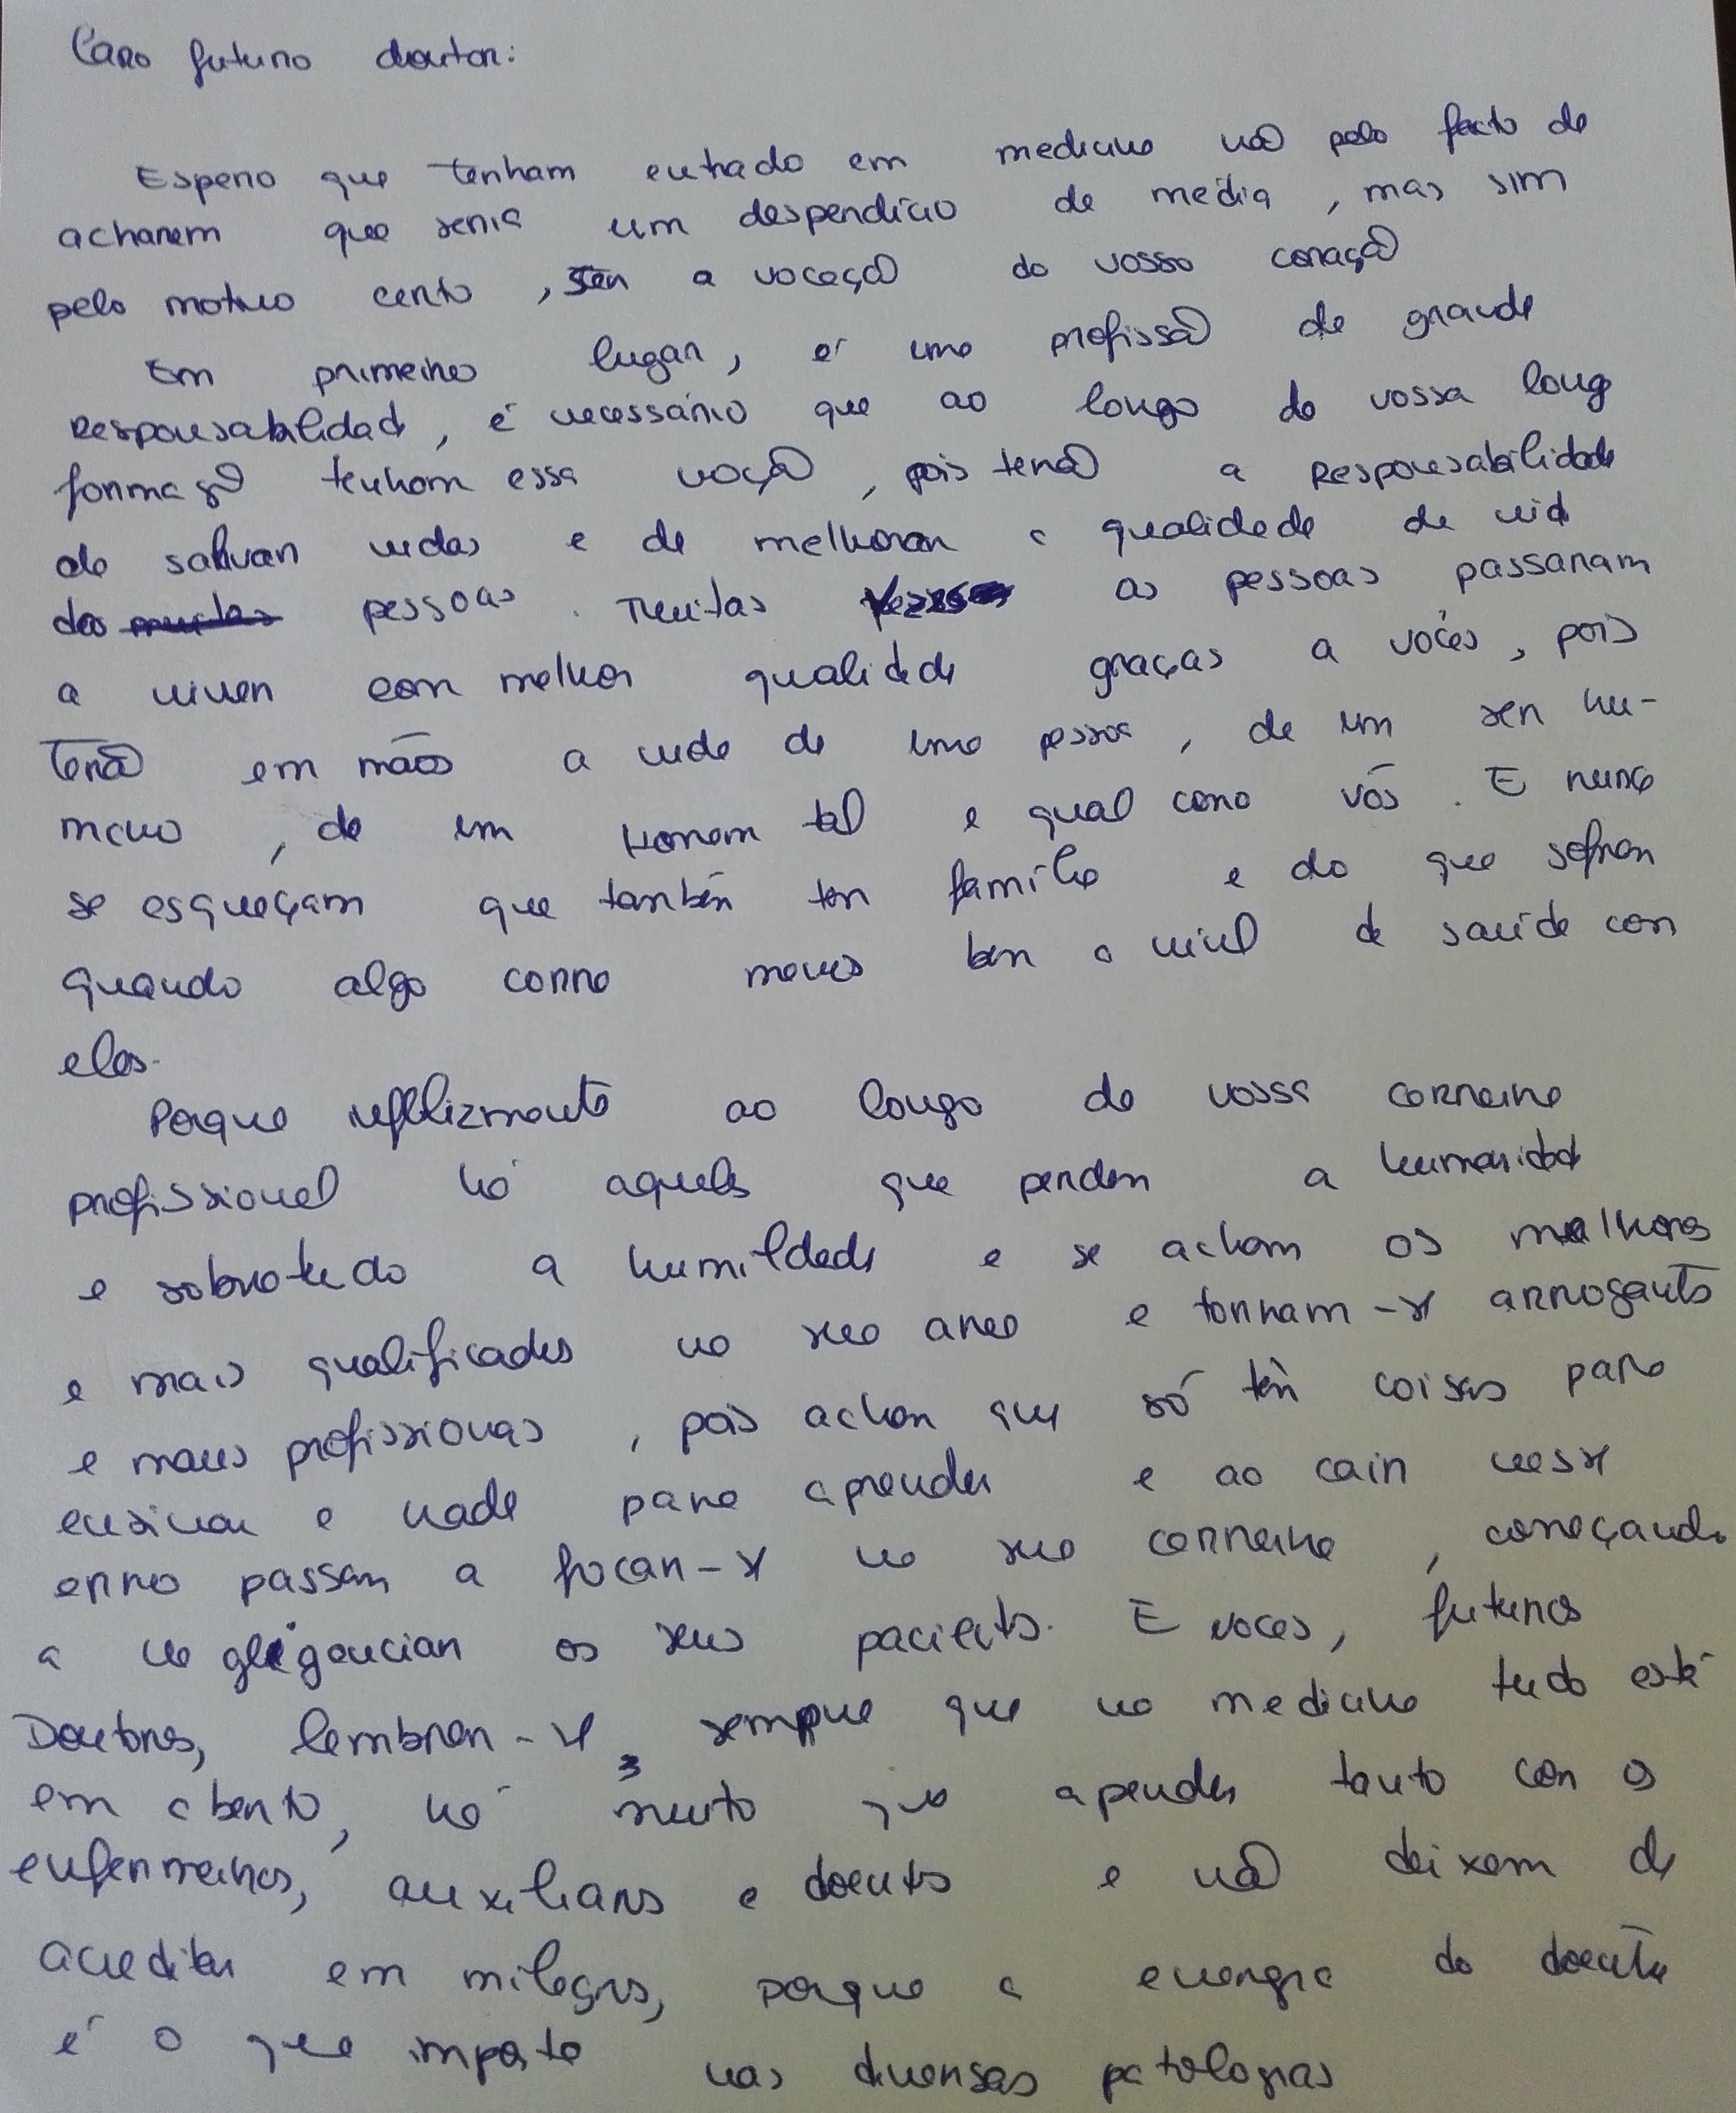 Caro futuro doutor:
Espero que tenham entrado em medicina não pelo facto de
acharem que seria um desperdício de média, mas sim
pelo motivo certo, ser a vocação do vosso coração
Em primeiro lugar, é uma profissão de grande
Responsabilidade, é necessário que ao longo da vossa longa
formação tenham essa noção, pois terão a Responsabilidade
de salvar vidas e de melhorar a qualidade de vida
das muitas pessoas. Muitas as pessoas passaram
a viver com melhor qualidade graças a vocês, pois
Terão em mãos a vida de uma pessoa, de um ser hu-
mano, de um Homem tal e qual como vós. E nunca
se esqueçam que também tem família e do que sofrem
quando algo corre menos bem a nível de saúde com
eles.
Porque infelizmente ao longo da vossa carreira
profissional há aqueles que perdem a humanidade
e sobretudo a humildade e se acham os melhores
e mais qualificados na sua area e tornam-se arrogantes
e maus profissionais, pois acham que só têm coisas para
ensinar e nada para aprender e ao cair nesse
erro passam a focar-se na sua carreira, começando
a neglegenciar os seus pacientes. E voces, futuros
Doutores, lembrem-se, sempre que na medicina tudo está
em aberto, há muito que apender tanto com os
enfermeiros, auxiliares e doentes e não deixem de
acreditar em milagres, porque a energia do doente
é o que importa nas diversas patologias